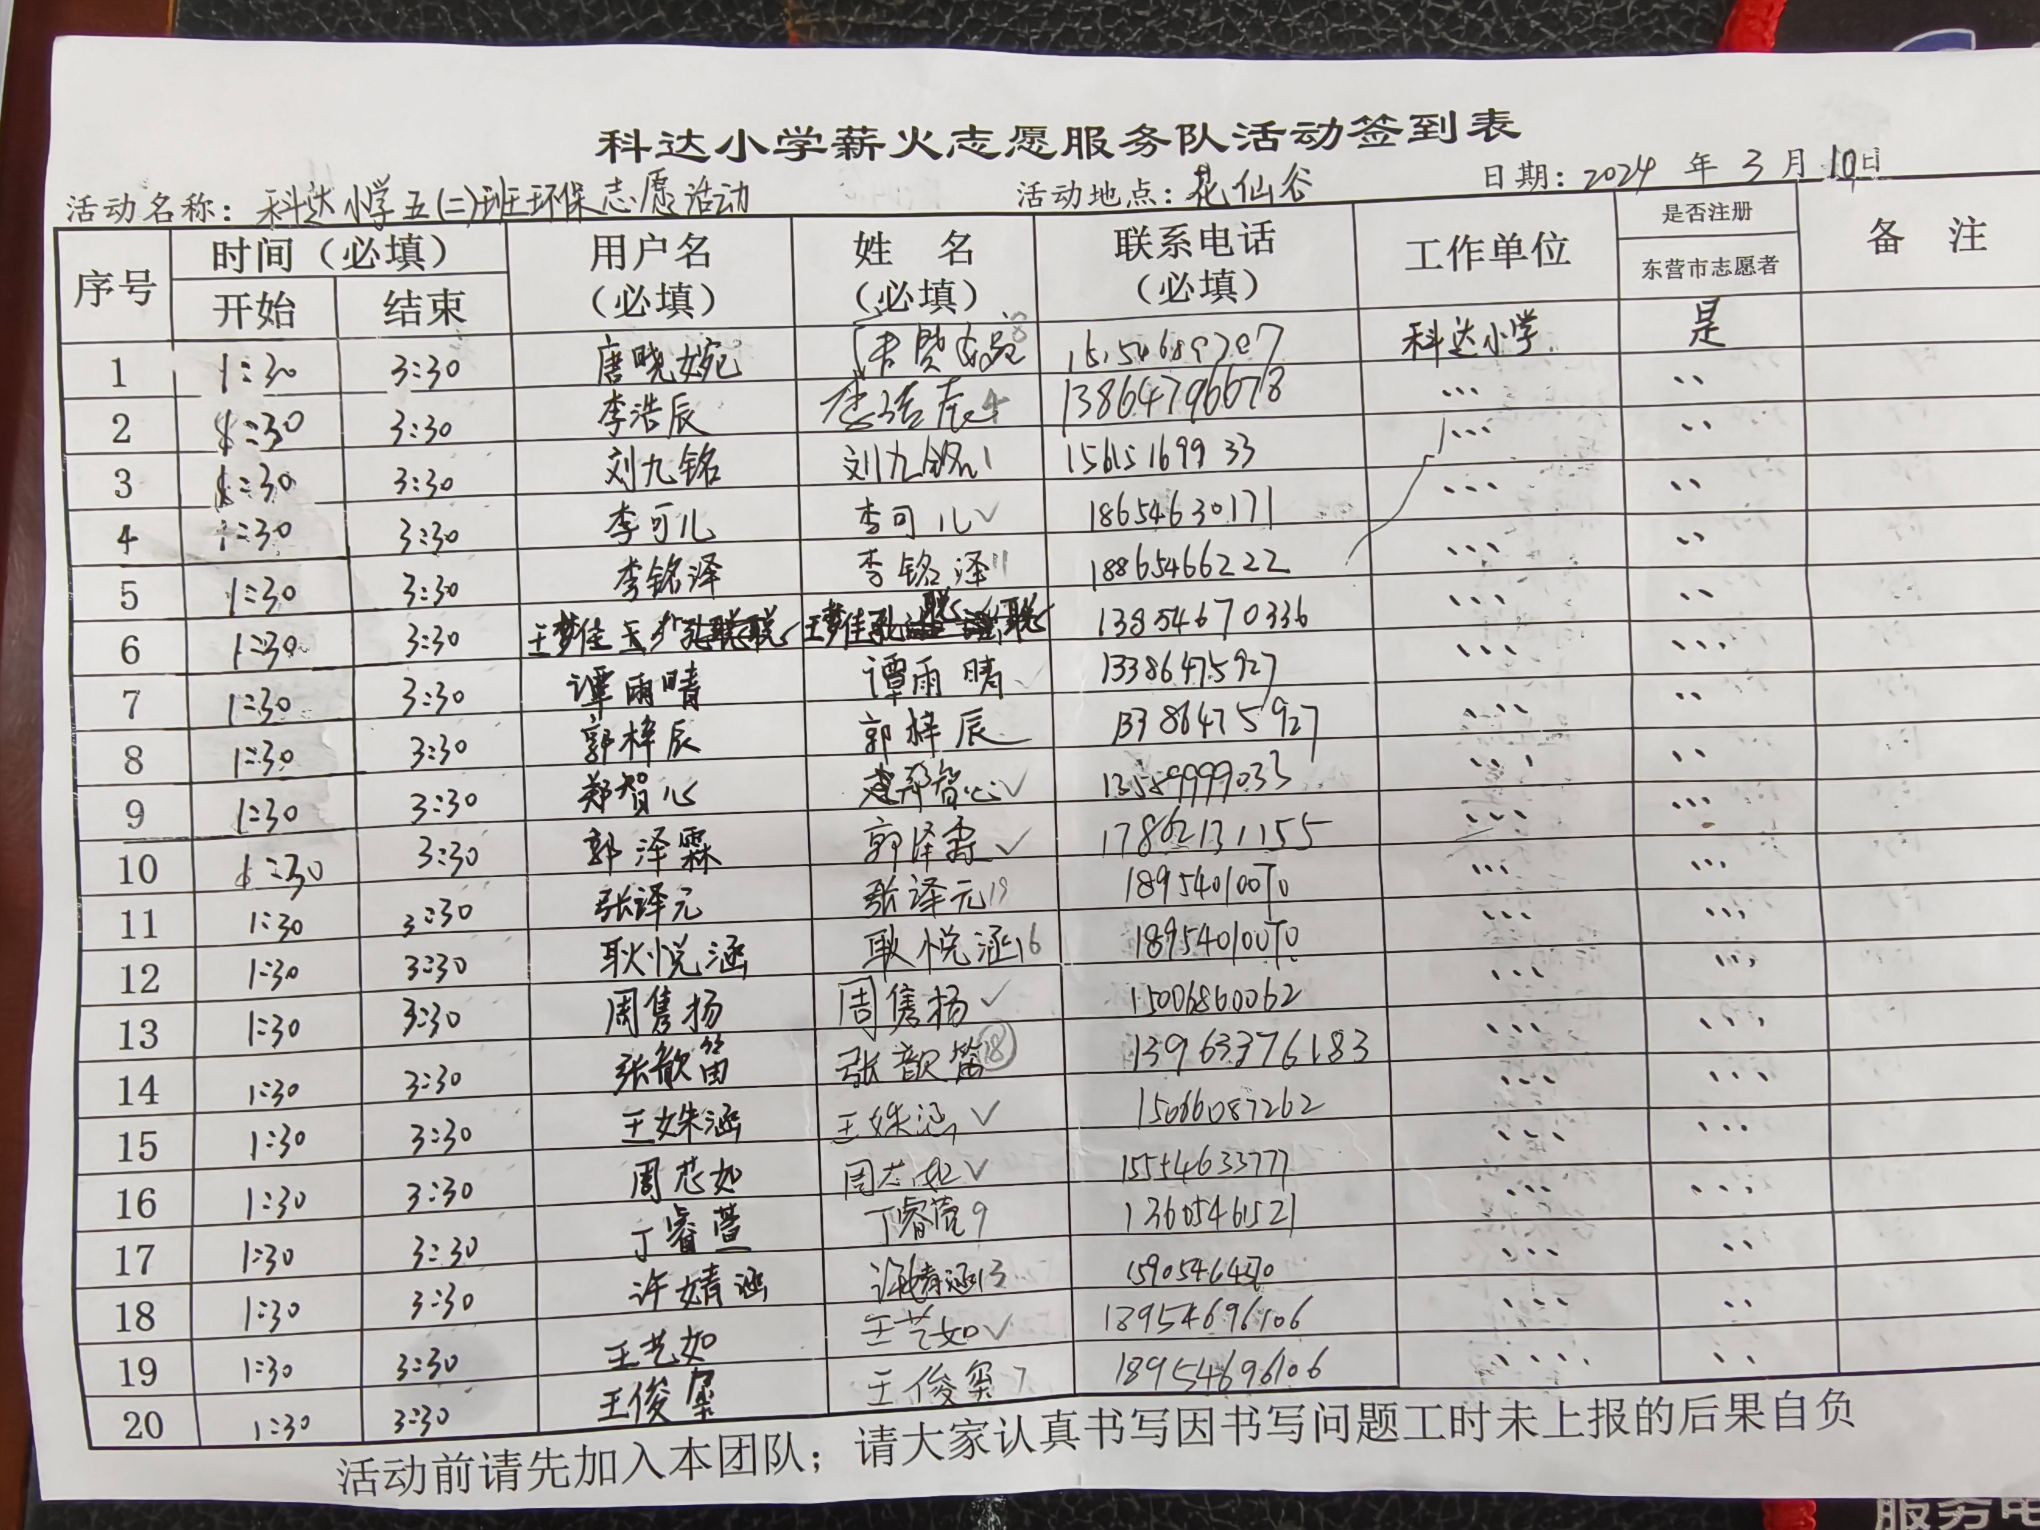 科达小学薪火志愿服务队活动签到表
活动名称：科达小学五(二)班环保志愿活动 活动地点：花仙谷 日期：2024 年 3 月 10日
序号 时间（必填） 用户名（必填） 姓 名（必填） 联系电话（必填） 工作单位 是否注册 东营市志愿者 备 注
开始 结束
1 1:30 3:30 唐晓婉 8 科达小学 是
2 1:30 3:30 李浩辰 李浩辰 4 13864796678 ... ..
3 1:30 3:30 刘九铭 刘九铭 1 15615169933 ... ..
4 1:30 3:30 李可儿 李可儿 ✓ 18654630171 ... ..
5 1:30 3:30 李铭泽 李铭泽 11 18865466222 ... ..
6 1:30 3:30 王梦佳 王梦佳 13854670336 ... ..
7 1:30 3:30 谭雨晴 谭雨晴 ✓ 13386475927 ... ...
8 1:30 3:30 郭梓辰 郭梓辰 13386475927 ... ..
9 1:30 3:30 郑智心 郑智心 ✓ 13589999033 ... ..
10 1:30 3:30 郭泽霖 郭泽霖 ✓ 17862131155 ... ...
11 1:30 3:30 张泽元 张泽元 19 ... ...
12 1:30 3:30 耿悦涵 耿悦涵 16 ... ...
13 1:30 3:30 周隽扬 周隽扬 ✓ 15006860062 ... ...
14 1:30 3:30 张歆笛 张歆笛 18 13963376183 ... ...
15 1:30 3:30 王姝涵 王姝涵 ✓ 15066087262 ... ...
16 1:30 3:30 周芯如 周芯如 ✓ 15554633777 ... ...
17 1:30 3:30 丁睿萱 丁睿萱 9 13605461521 ... ...
18 1:30 3:30 许婧涵 许婧涵 13 ... ..
19 1:30 3:30 王艺如 王艺如 ✓ 18954696106 ... ..
20 1:30 3:30 王俊 王俊 7 18954696106 .... ..
活动前请先加入本团队；请大家认真书写因书写问题工时未上报的后果自负
服务电